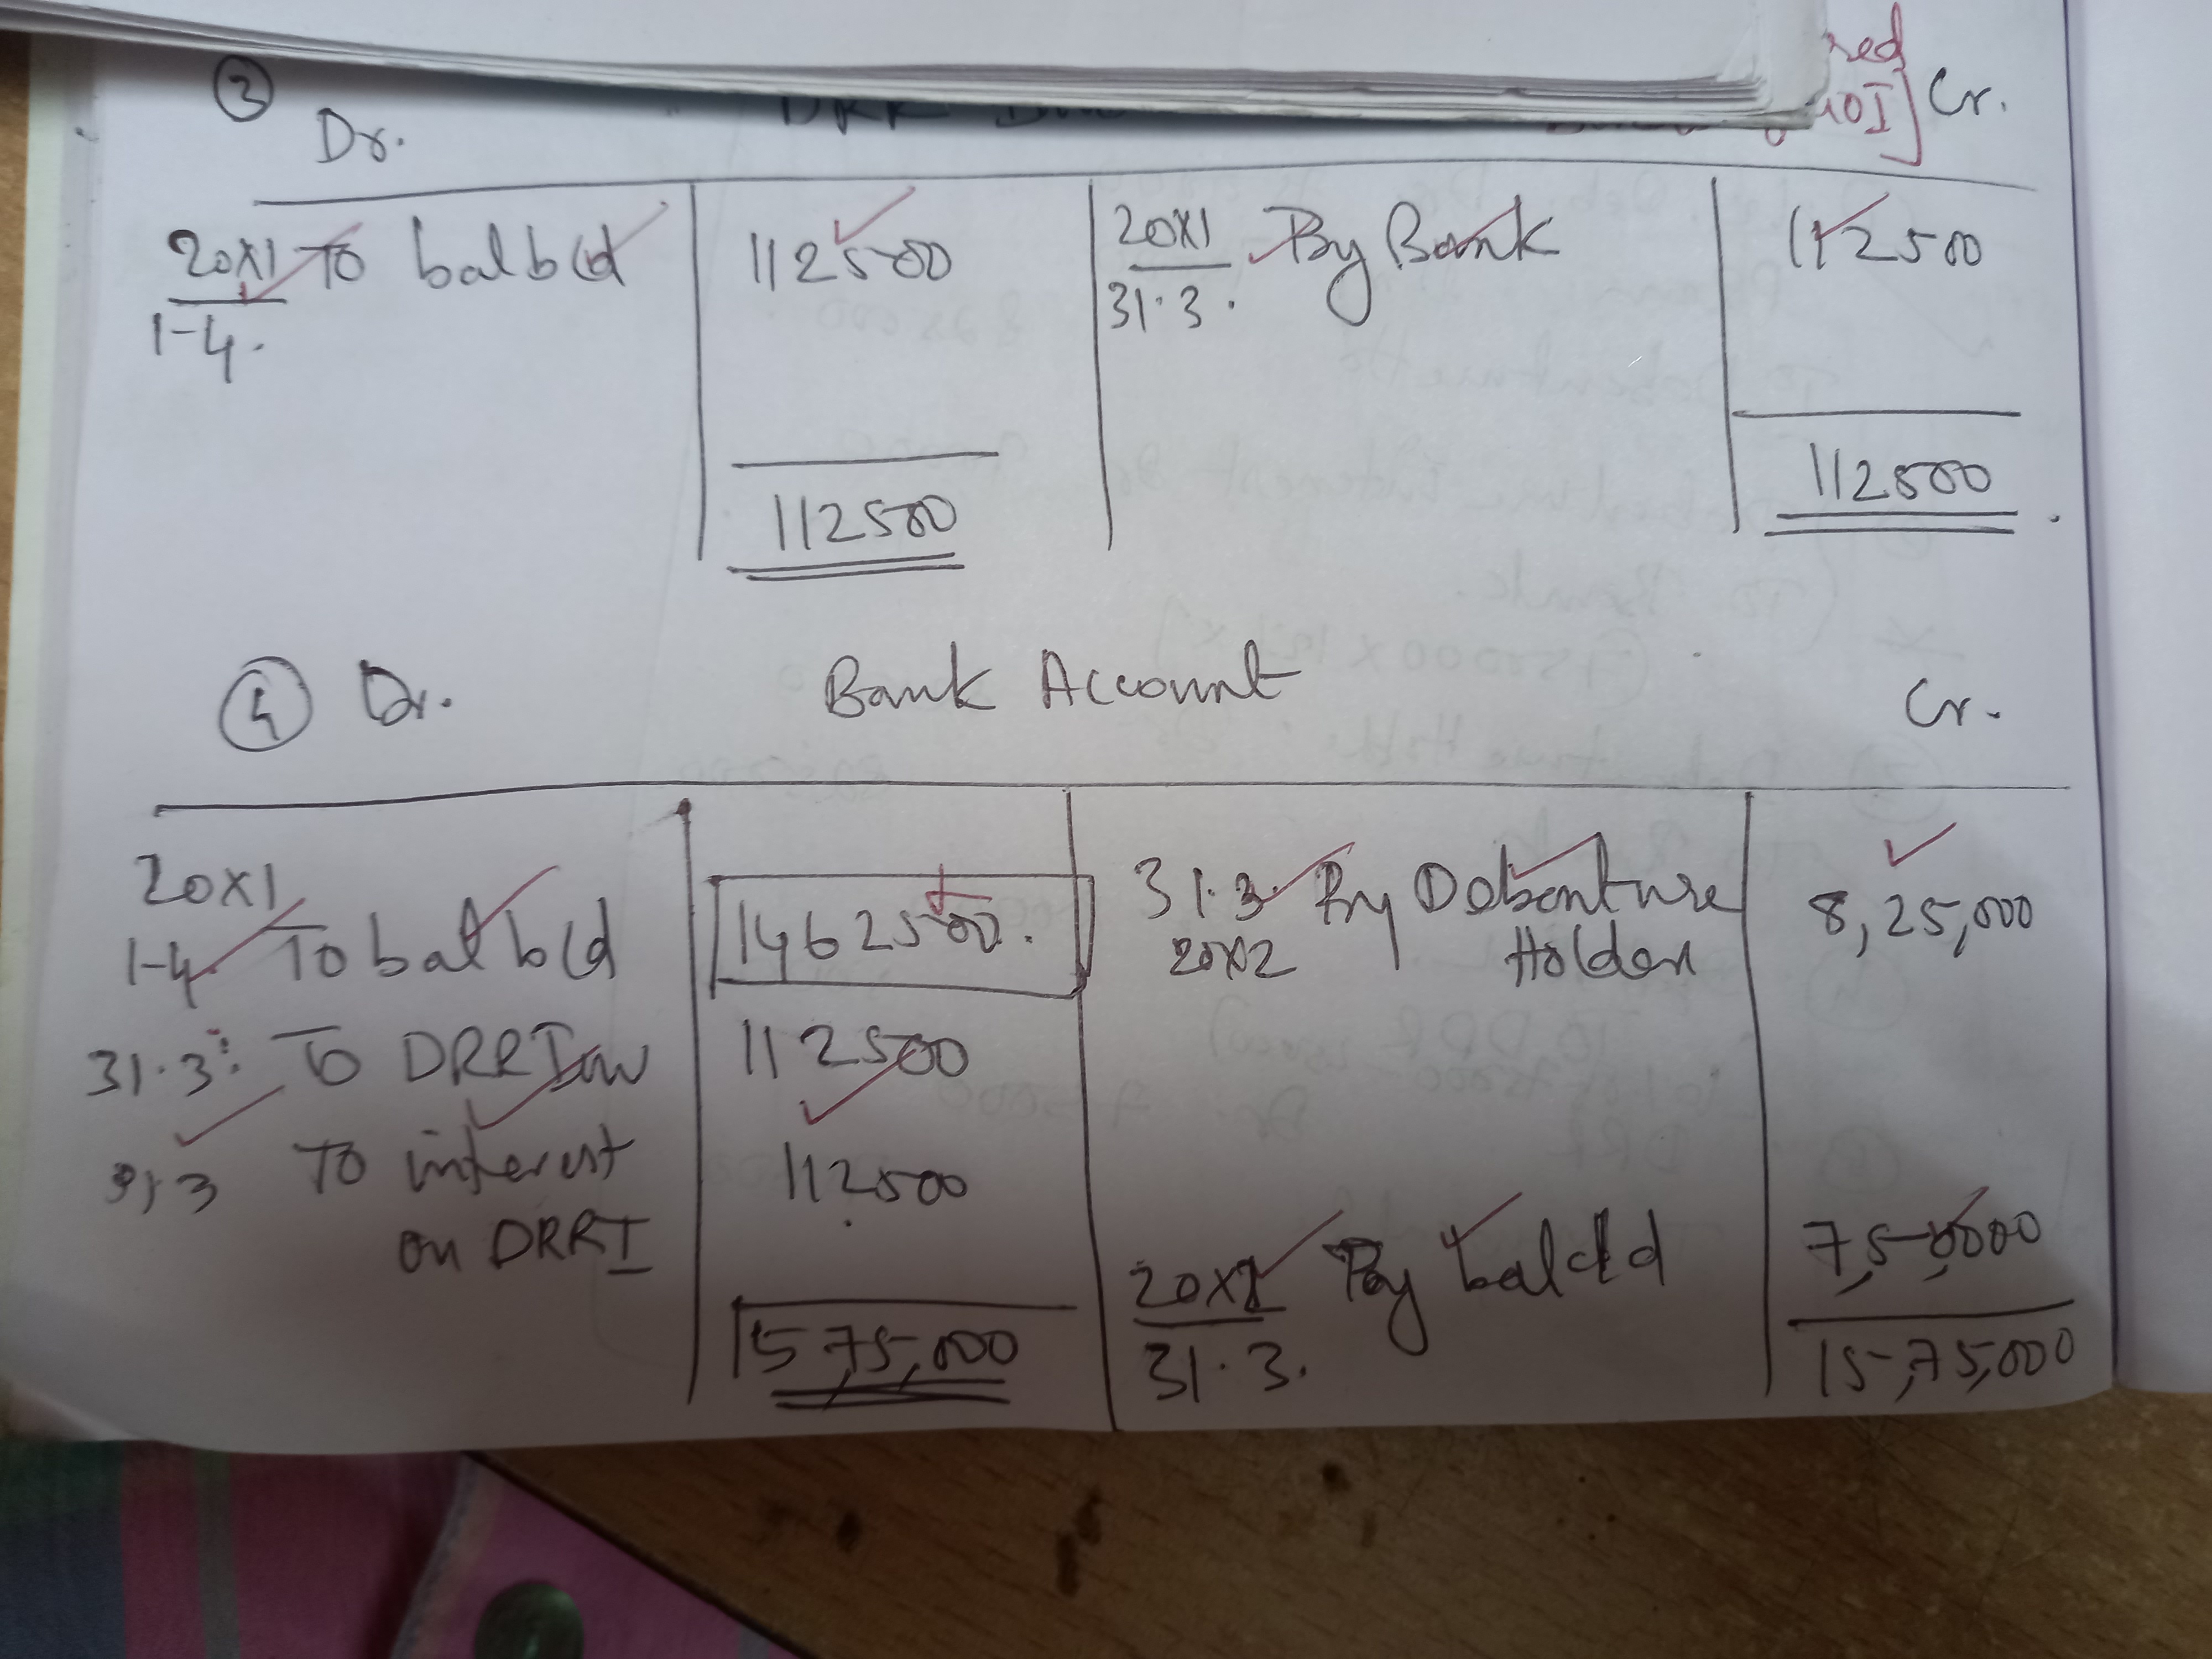 red
③ Dr. 10I] Cr.
20X1 To bal b(d 112500 20X1 By Bank 112500
1-4. 31.3.
112500 112500
④ Dr. Bank Account Cr.
20X1
1-4. To bal b(d 1462500. 31.3. By Debenture 8,25,000
20X2 Holder
31.3: To DRRInv 112500
31.3 To interest 112500
on DRRI
20X2 By bal c(d 7,50,000
31.3.
15,75,000 15,75,000